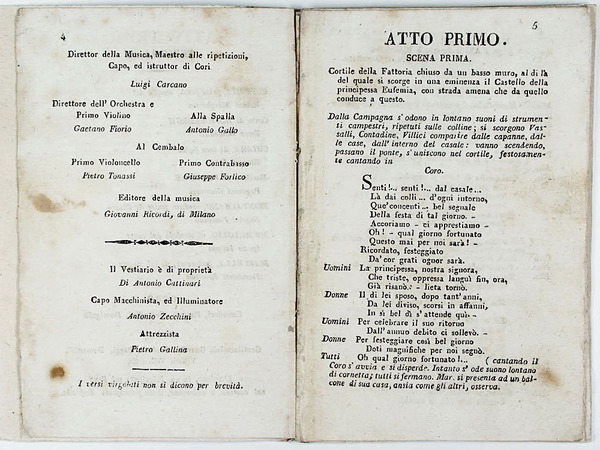 4
Direttor della Musica, Maestro alle ripetizioni,
Capo, ed istruttor di Cori
Luigi Carcano
Direttore dell' Orchestra e
Primo Violino
Alla Spalla
Gaetano Fiorio
Antonio Gallo
Al Cembalo
Primo Violoncello
Primo Contrabasso
Pietro Tonassi
Giuseppe Forlico
Editore della musica
Giovanni Ricordi, di Milano
Il Vestiario è di proprietà
Di Antonio Cattinari
Capo Macchinista, ed Illuminatore
Antonio Zecchini
Attrezzista
Pietro Gallina
I versi virgolati non si dicono per brevità.
5
ATTO PRIMO.
SCENA PRIMA.
Cortile della Fattoria chiuso da un basso muro, al di là
del quale si scorge in una eminenza il Castello della
principessa Eufemia, con strada amena che da quello
conduce a questo.
Dalla Campagna s'odono in lontano suoni di strumen-
ti campestri, ripetuti sulle colline; si scorgono Vas-
salli, Contadine, Villici comparire dalle capanne, dal-
le case, dall'interno del casale: vanno scendendo,
passano il ponte, s'uniscono nel cortile, festosamen-
te cantando in
Coro.
Senti!.. senti!... dal casale...
Là dai colli... d'ogni intorno,
Que' concenti... bel segnale
Della festa di tal giorno. -
Accoriamo - ci apprestiamo -
Oh! - qual giorno fortunato
Questo mai per noi sarà! -
Ricordato, festeggiato
Da' cor grati ognor sarà.
Uomini La principessa, nostra signora,
Che triste, oppressa languì fin, ora,
Già risanò: - lieta tornò.
Donne Il di lei sposo, dopo tant'anni,
Da lei diviso, scorsi in affanni,
In sì bel dì s'attende quì. -
Uomini Per celebrare il suo ritorno
Dall'annuo debito ci sollevò. -
Donne Per festeggiare così bel giorno
Doti magnifiche per noi segnò.
Tutti Oh qual giorno fortunato!... (cantando il
Coro s'avvia e si disperde. Intanto s'ode suono lontano
di cornetta; tutti si fermano. Mar. si presenta ad un bal-
cone di sua casa, ansia come gli altri, osserva.